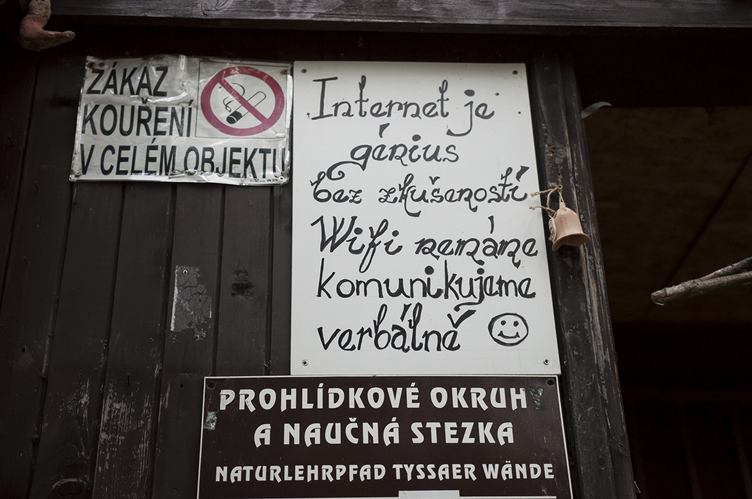 ZÁKAZ
KOUŘENÍ
V CELÉM OBJEKTU
Internet je
génius
bez zkušeností
Wifi nemáme
komunikujeme
verbálně
PROHLÍDKOVÉ OKRUHY
A NAUČNÁ STEZKA
NATURLEHRPFAD TYSSAER WÄNDE